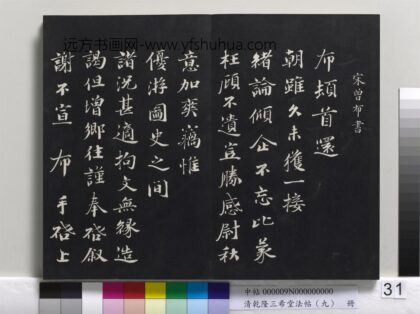 远方书画网-www.yfshuhua.com
宋曾布書
布頓首還
朝雖久未獲一接
緒論傾企不忘比蒙
枉顧不遺豈勝感尉秋
意加爽竊惟
優游圖史之間
諸況甚適拘文無緣造
謁但增鄉往謹奉啓敘
謝不宣 布 手啓上
中帖 000009N000000000
清乾隆三希堂法帖（九） 冊
31